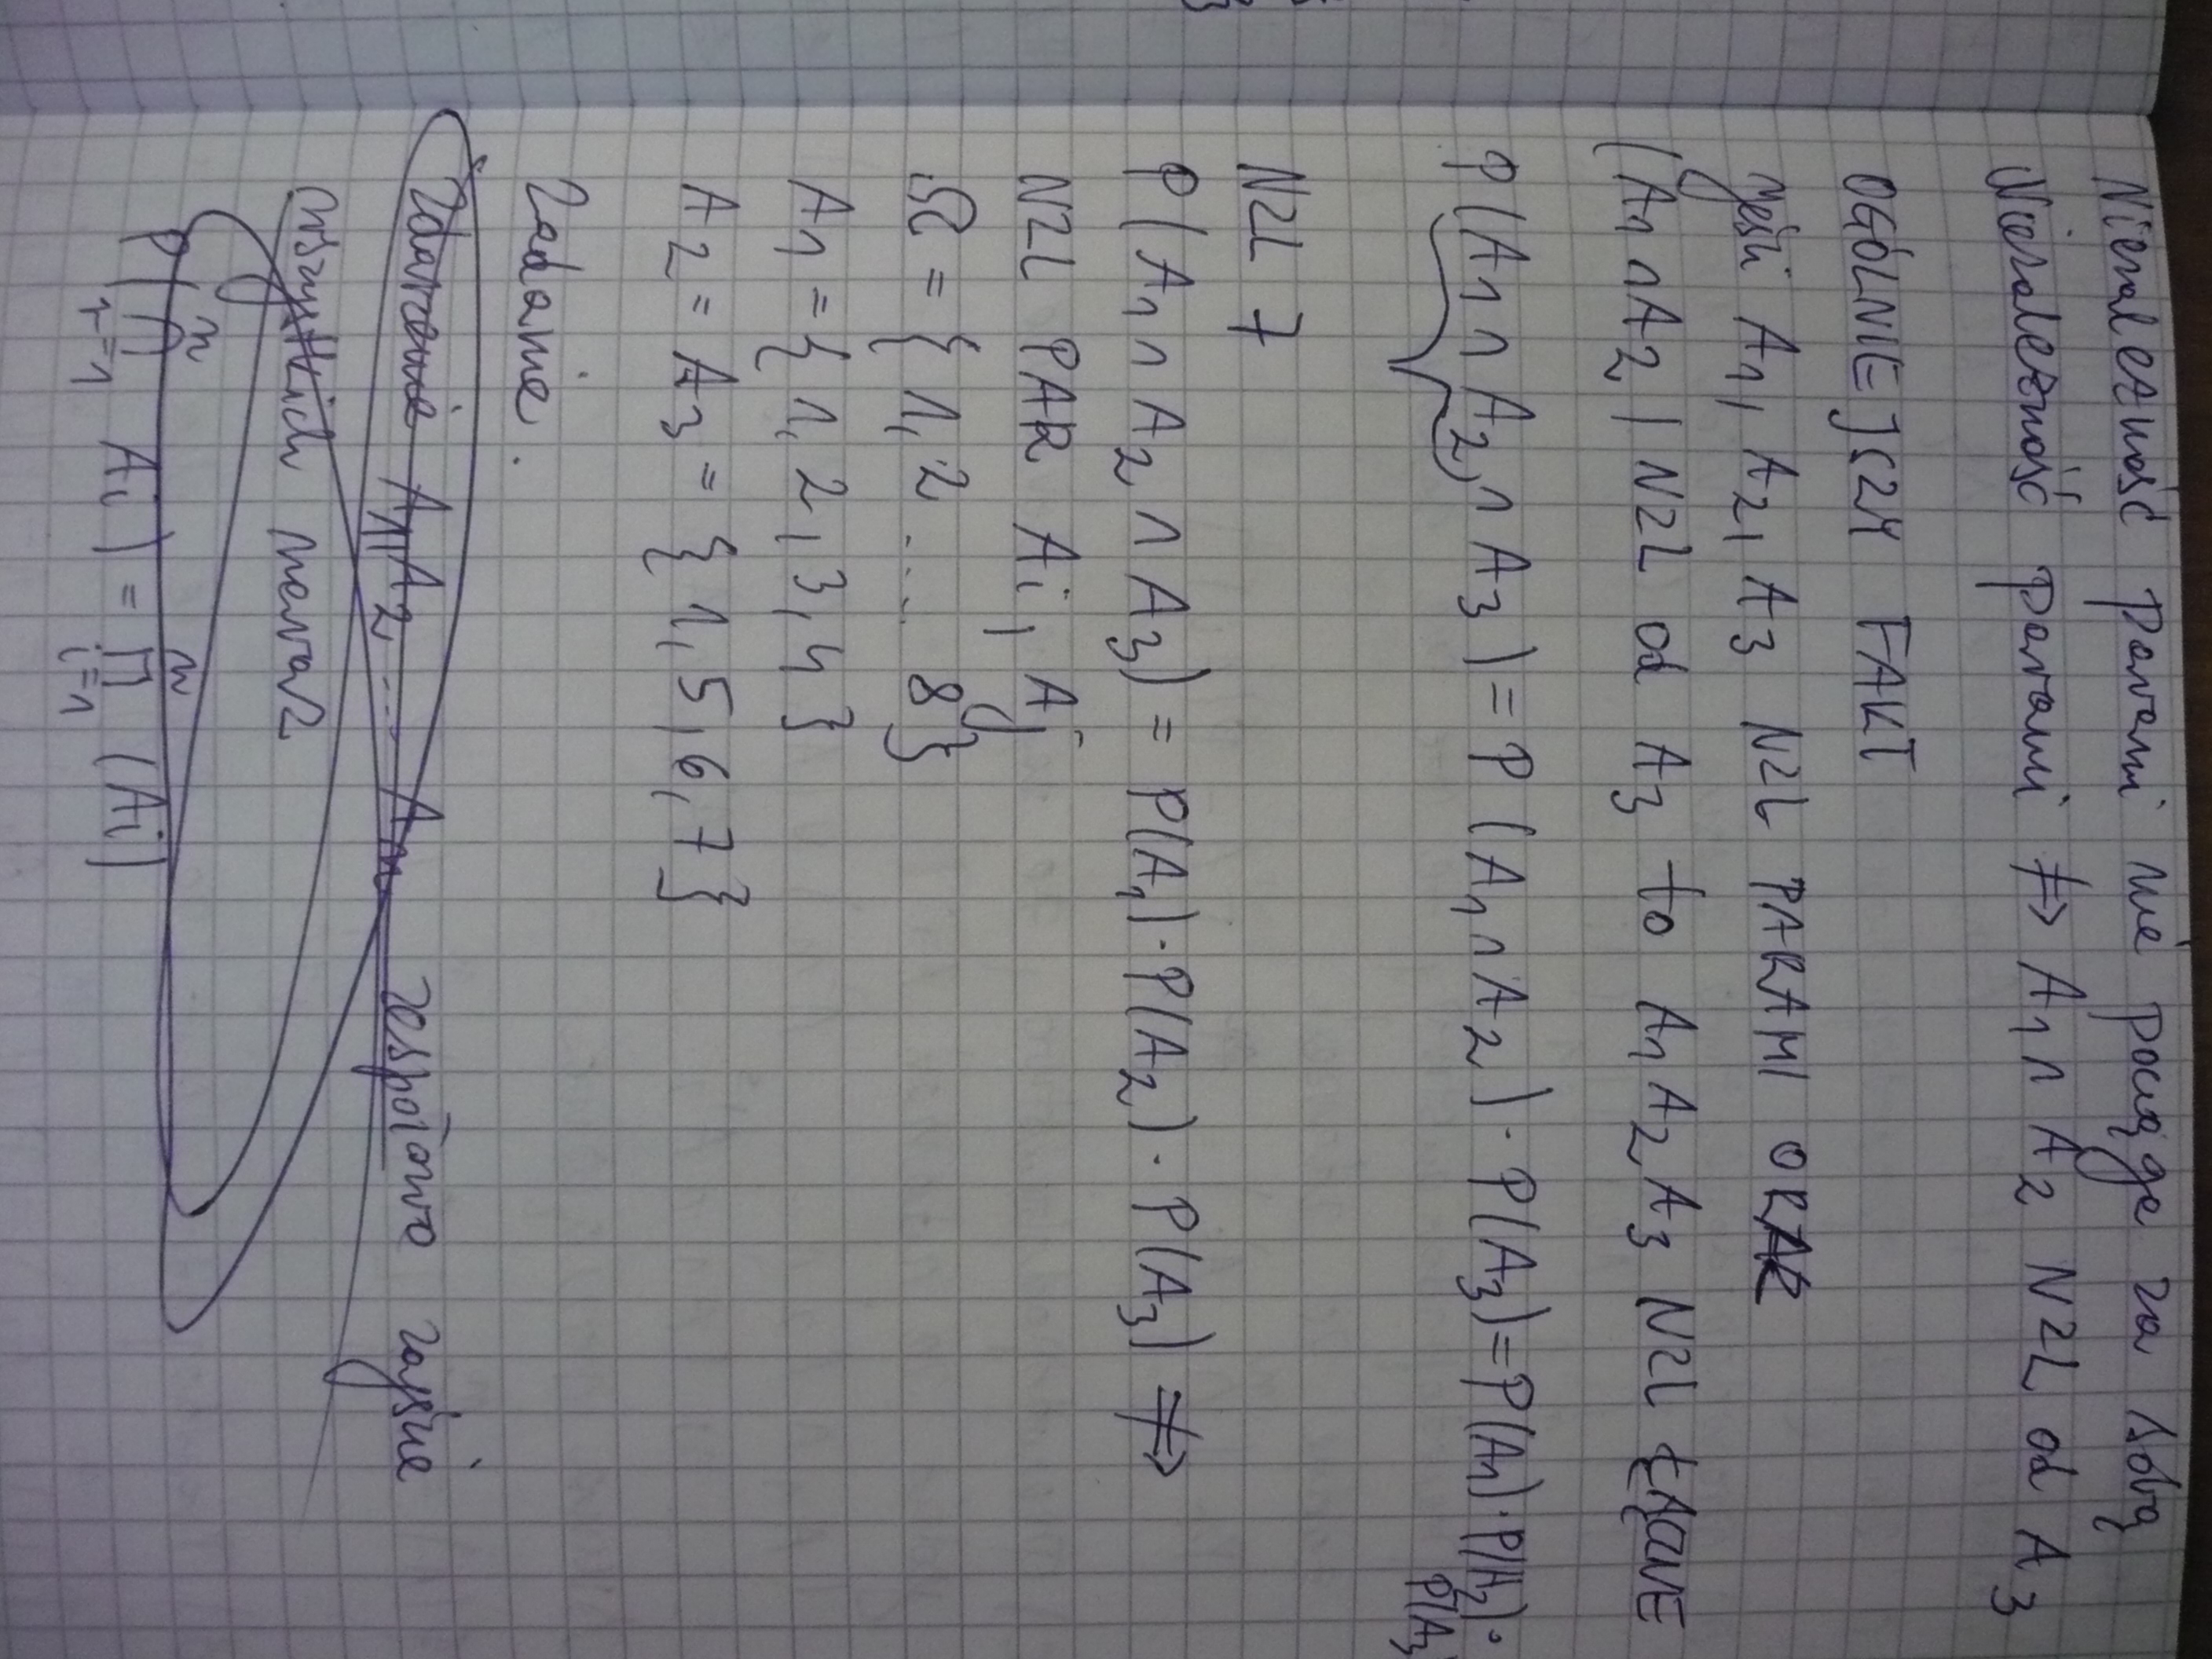 Niezależność parami nie pociąga za sobą
Niezależność parami ⇏ A1 ∩ A2 NZL od A3
OGÓLNIEJSZY FAKT
Jeśli A1, A2, A3 NZL PARAMI ORAZ
(A1 ∩ A2) NZL od A3 to A1 A2 A3 NZL ŁĄCZNIE
P(A1 ∩ A2 ∩ A3) = P(A1 ∩ A2) · P(A3) = P(A1) · P(A2) ·
P(A3)
NZL 7
P(A1 ∩ A2 ∩ A3) = P(A1) · P(A2) · P(A3) ⇏
NZL PAR Ai, Aj
Ω = {1, 2 .... 8}
A1 = {1, 2, 3, 4}
A2 = A3 = {1, 5, 6, 7}
Zadanie.
Zdarzenie A1 A2 .... An zespołowo zajście
wszystkich naraz
P(⋂ n i=1 Ai) = ∏ n i=1 (Ai)